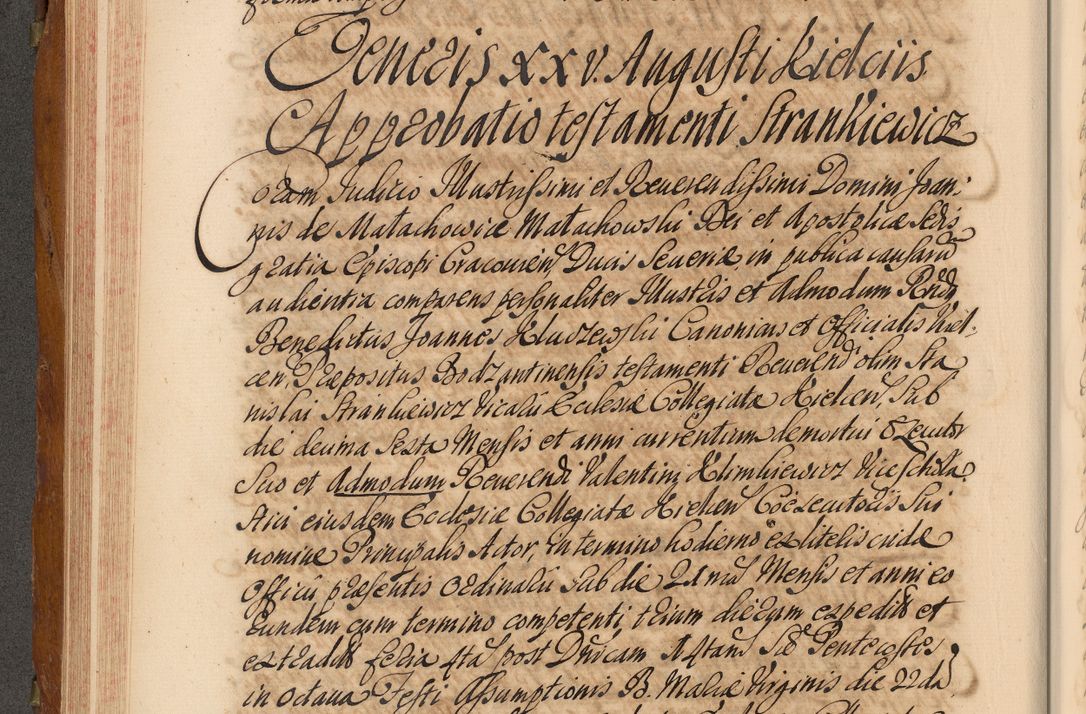 Veneris XXV. Augusti Kielciis
Approbatio testamenti Strankiewicz
Coram Judicio Illustrissimi et Reverendissimi Domini Joan,
nis de Małachowice Małachowski Dei et Apostolicæ Sedis
gratia Episcopi Cracovien, Ducis Severiæ, in publica causarũ
audientia comparens personaliter Illustris et Admodum Rndũ
Benedictus Joannes Kluszewski Canonicus et Officialis Kiel,
cen, Præpositus Bodzantinensis testamenti Reverend olim Sta
nislai Strankiewicz Vicarii Ecclesiæ Collegiatæ Kielcen, sub
die decima sexta Mensis et anni currentium demortui Exequtor
suo et Admodum Reverendi Valentini Klimkiewicz Vice Schola
strici eiusdem Ecclesiæ Collegiatæ Kielcen Coexecutoris sui
nomine Principalis Actor, in termino hodierno ex literis cridæ
Officii præsentis ordinarii sub die 21 mẽs Mensis et anni eo
eundem cum termino competenti trium dierum expedit et
extradit feria 4ta post Dnicam 14tam S. Pentecostes
in octava Festi Assumptionis B. Mariæ Virginis die 22da